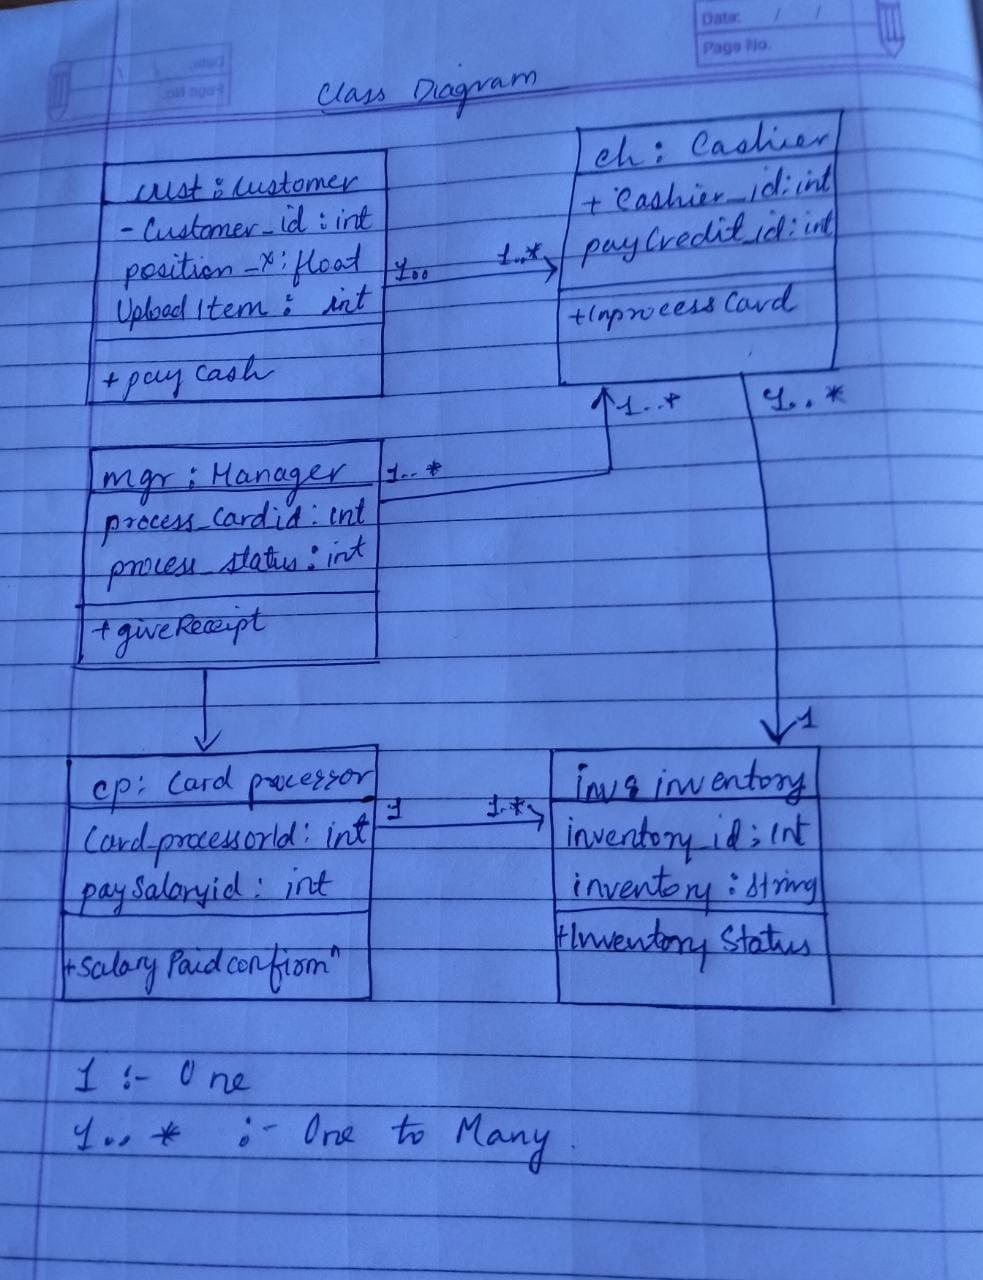 Data: / /
Page No.
Class Diagram
cust : Customer
- Customer_id : int
position_x : float
Upload Item : int
+ pay cash
1..
1..*
ch : Cashier
+ Cashier_id : int
payCredit_id : int
+ Inprocess Card
1..*
1..*
mgr : Manager
process_Cardid : int
process_status : int
+ giveReceipt
1..*
1
cp : Card processor
Card-processorId : int
paySalaryid : int
+ Salary Paid confirmⁿ
1
1..*
inv : inventory
inventory_id : Int
inventory : String
+ Inventory Status
1 :- One
1..* :- One to Many.